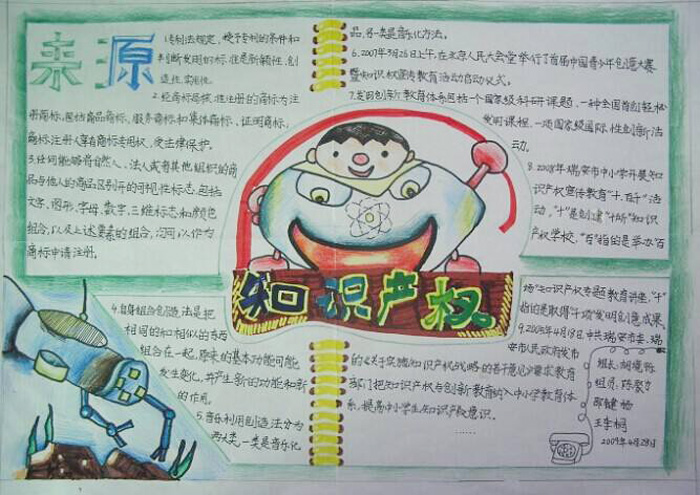 来源
1.专利法规定,授予专利的条件和
判断发明的标准是新颖性、创
造性、实用性。
2.经商标局核准注册的商标为注
册商标,包括商品商标、服务商标和集体商标、证明商标,
商标注册人享有商标专用权,受法律保护。
3.任何能够将自然人、法人或者其他组织的商
品与他人的商品区别开的可视性标志,包括
文字、图形、字母、数字、三维标志和颜色
组合,以及上述要素的组合,均可以作为
商标申请注册。
4.自身组合创造法是把
相同的和相似的东西
组合在一起,原来的基本功能可能
发生变化,并产生新的功能和新
的作用。
5.音乐利用创造法分为
两大类,一类是音乐化
知识产权
品,另一类是音乐化方法。
6.2007年3月26日上午,在北京人民大会堂举行了首届中国青少年创造大赛
暨知识权宣传教育活动启动仪式。
7.发明创新教育体系包括一个国家级科研课题,一种全国首创轻松
发明课程,一项国家级国际性创新活
动。
8.2008年瑞安市中小学开展知
识产权宣传教育“十、百、千”活
动,“十”是创建“十所”知识
产权学校,“百”指的是举办“百
场”知识产权专题教育讲座,“千”
指的是取得“千项”发明创造成果。
9.2009年4月18日,中共瑞安市委、瑞
安市人民政府发布
的《关于实施知识产权战略的若干意见》要求教育
部门把知识产权与创新教育纳入中小学教育体
系,提高中小学生知识产权意识。
……
组长:胡境
组员:陈
邵键
王李桐
2009年4月28日